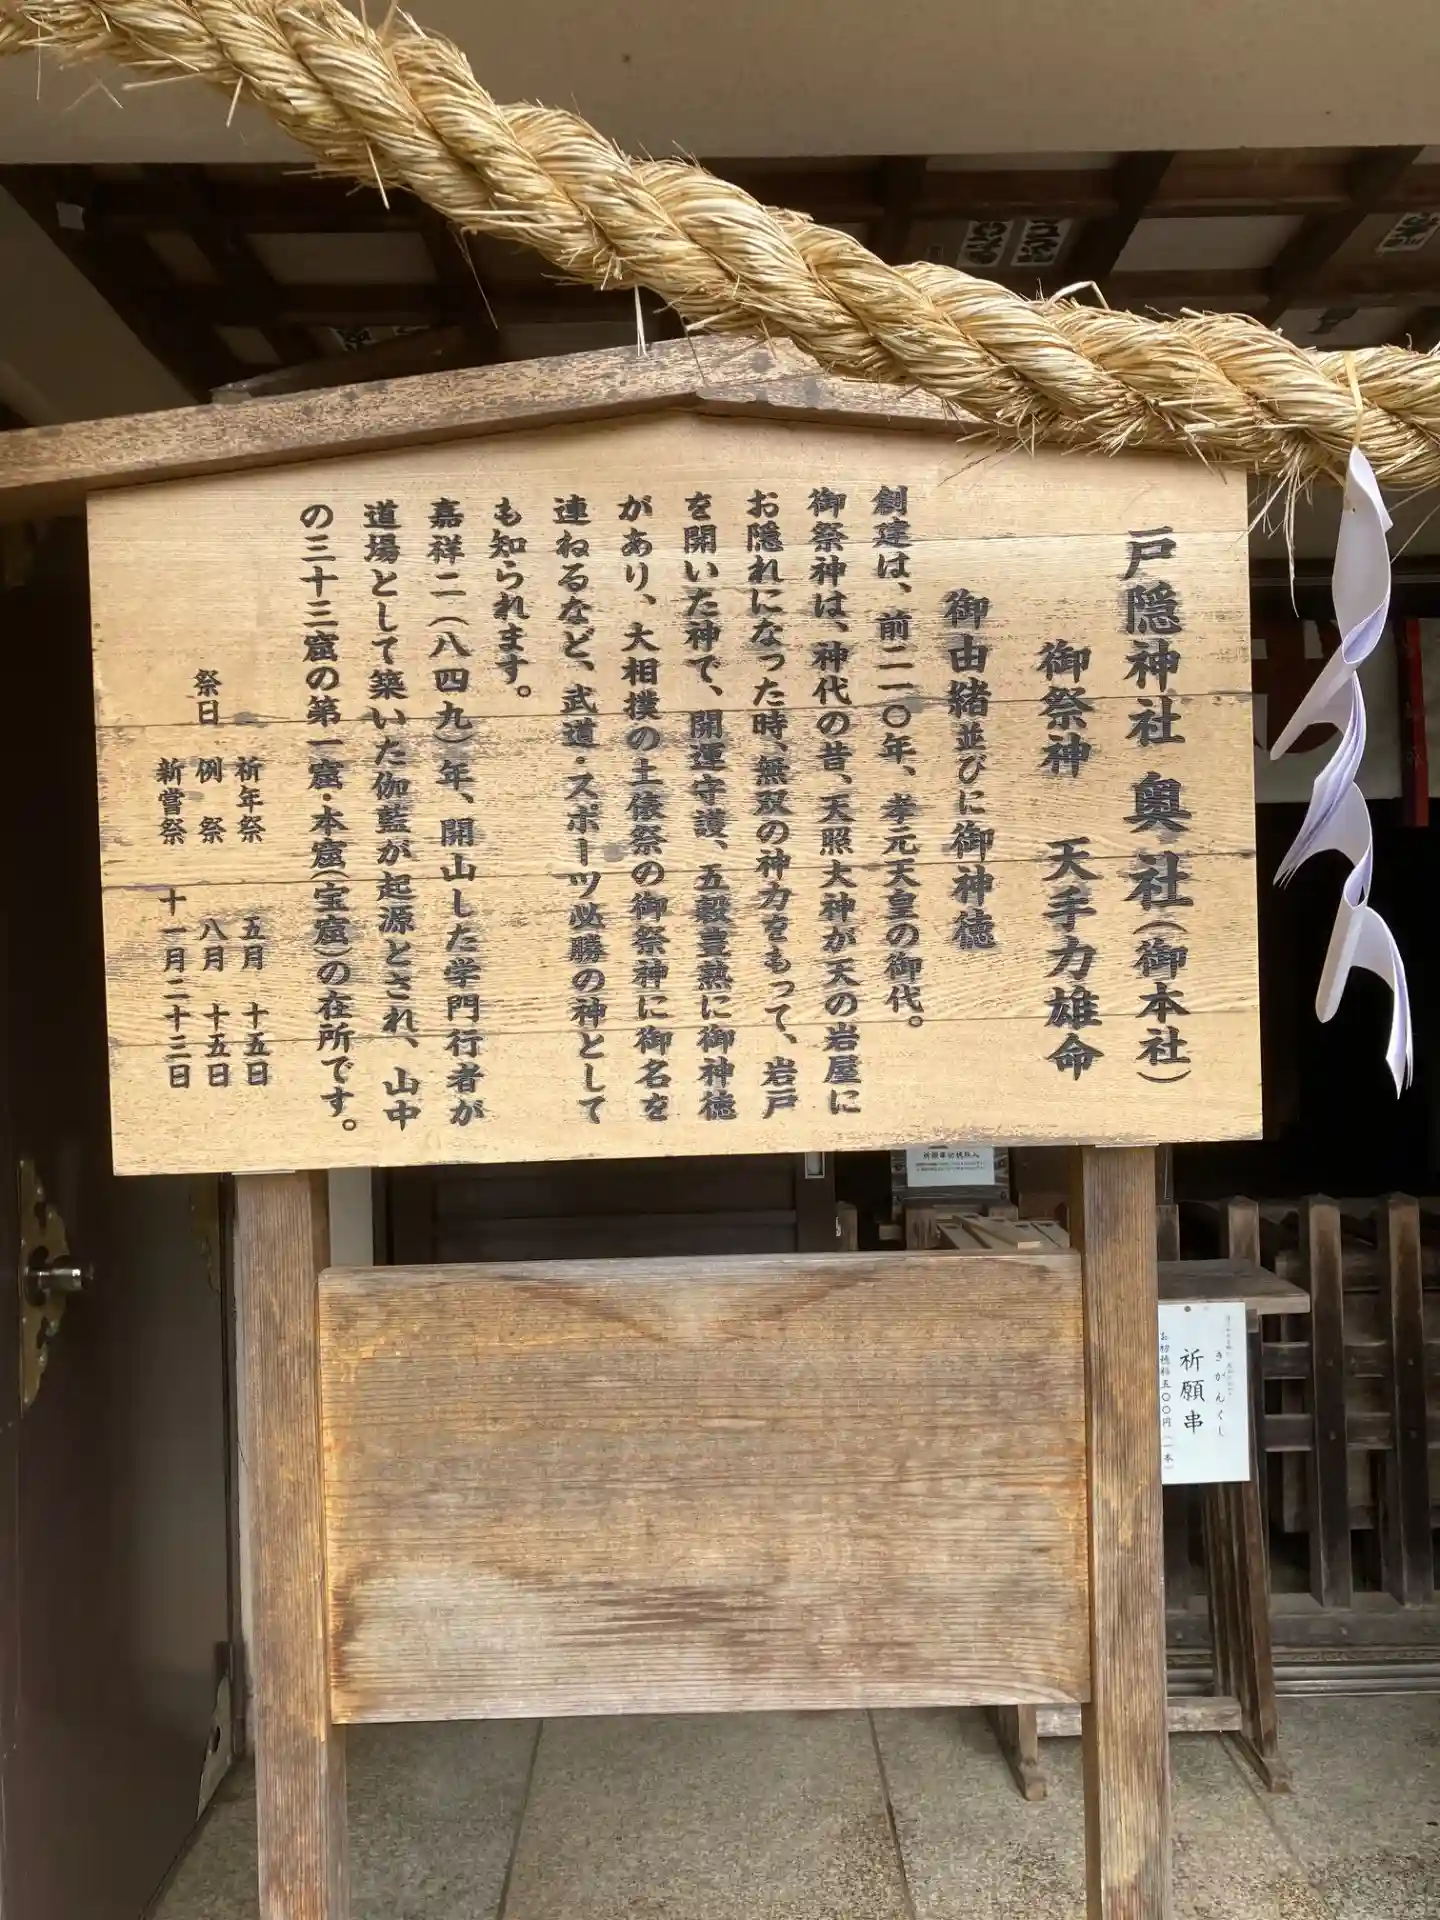 戸隠神社 奥社(御本社)
御祭神 天手力雄命
御由緒並びに御神徳
創建は、前二一〇年、孝元天皇の御代。
御祭神は、神代の昔、天照大神が天の岩屋に
お隠れになった時、無双の神力をもって、岩戸
を開いた神で、開運守護、五穀豊熟に御神徳
があり、大相撲の土俵祭の御祭神に御名を
連ねるなど、武道・スポーツ必勝の神として
も知られます。
嘉祥二(八四九)年、開山した学門行者が
道場として築いた伽藍が起源とされ、山中
の三十三窟の第一窟・本窟(宝窟)の在所です。
祭日 祈年祭 五月 十五日
例 祭 八月 十五日
新嘗祭 十一月二十三日
きがんくし
祈願串
お初穂料五〇〇円(一本)